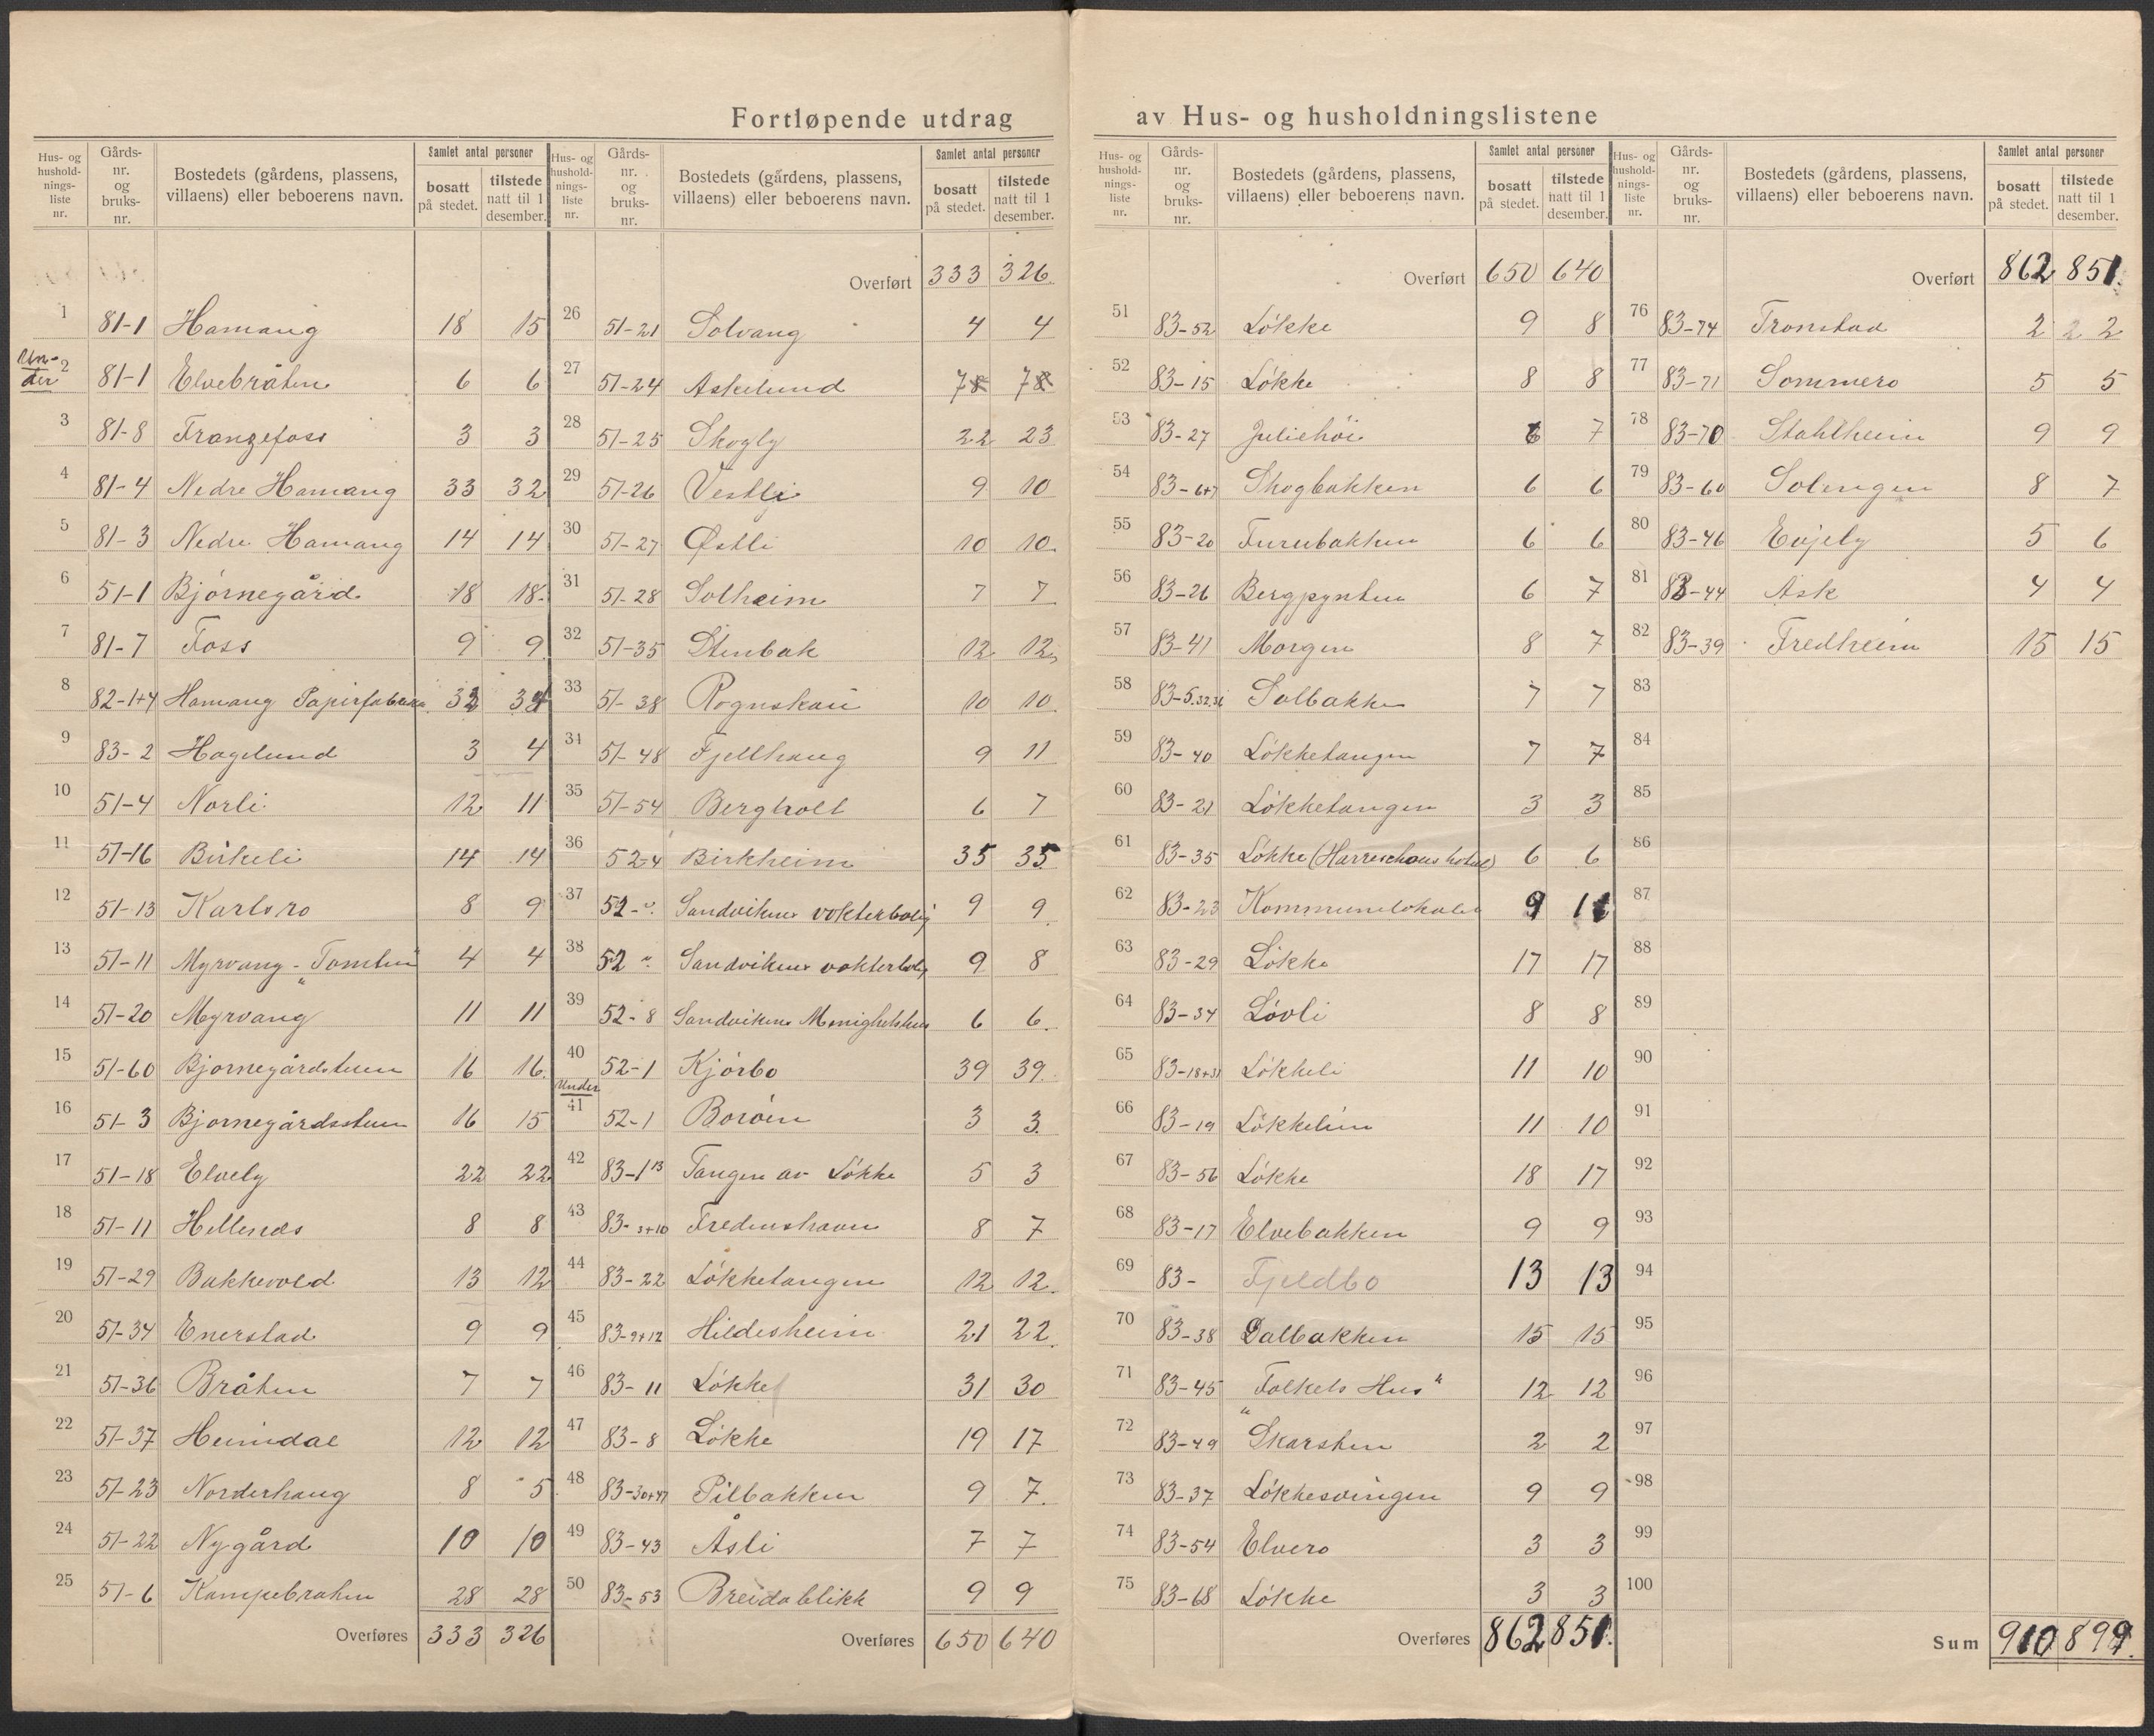 Fortløpende utdrag av Hus- og husholdningslistene
Hus- og husholdnings- liste nr. Gårds- nr. og bruks- nr. Bostedets (gårdens, plassens, villaens) eller beboerens navn. Samlet antal personer bosatt på stedet. tilstede natt til 1 desember.
1 81-1 Hamang 18 15
Un- der 2 81-1 Elvebråten 6 6
3 81-8 Franzefoss 3 3
4 81-4 Nedre Hamang 33 32
5 81-3 Nedre Hamang 14 14
6 51-1 Bjørnegård 18 18
7 81-7 Foss 9 9
8 82-1+4 Hamang Papirfabrikk 32 34
9 83-2 Hagelund 3 4
10 51-4 Norli 12 11
11 51-16 Birkeli 14 14
12 51-13 Karlsro 8 9
13 51-11 Myrvang - "Tomten" 4 4
14 51-20 Myrvang 11 11
15 51-60 Bjørnegårdstuen 16 16
16 51-3 Bjørnegårdsstuen 16 15
17 51-18 Elvely 22 22
18 51-11 Hellesnes 8 8
19 51-29 Bakkevold 13 12
20 51-34 Enerstad 9 9
21 51-36 Bråten 7 7
22 51-37 Heimdal 12 12
23 51-23 Norderhaug 8 5
24 51-22 Nygård 10 10
25 51-6 Kampebråten 28 28
Overføres 333 326
Hus- og husholdnings- liste nr. Gårds- nr. og bruks- nr. Bostedets (gårdens, plassens, villaens) eller beboerens navn. Samlet antal personer bosatt på stedet. tilstede natt til 1 desember.
Overført 333 326
26 51-21 Solvang 4 4
27 51-24 Askelund 7 7
28 51-25 Skogly 22 23
29 51-26 Vestli 9 10
30 51-27 Østli 10 10
31 51-28 Solheim 7 7
32 51-35 Stenbak 12 12
33 51-38 Rognskau 10 10
34 51-48 Fjellhaug 9 11
35 51-54 Bergholt 6 7
36 52-4 Birkheim 35 35
37 52-" Sandvikens vokterbolig 9 9
38 52 " Sandvikens vokterbolig 9 8
39 52-8 Sandvikens Menighetshus 6 6
40 52-1 Kjørbo 39 39
Under 41 52-1 Borøen 3 3
42 83-1 13 Tangen av Løkke 5 3
43 83-3+10 Fredenshavn 8 7
44 83-22 Løkketangen 12 12
45 83-9+12 Hildesheim 21 22
46 83-11 Løkke 31 30
47 83-8 Løkke 19 17
48 83-30+47 Pilbakken 9 7
49 83-43 Åsli 7 7
50 83-53 Breidablikk 9 9
Overføres 650 640
Hus- og husholdnings- liste nr. Gårds- nr. og bruks- nr. Bostedets (gårdens, plassens, villaens) eller beboerens navn. Samlet antal personer bosatt på stedet. tilstede natt til 1 desember.
Overført 650 640
51 83-52 Løkke 9 8
52 83-15 Løkke 8 8
53 83-27 Juliehøi 6 7
54 83-6+7 Skogbakken 6 6
55 83-20 Furubakken 6 6
56 83-26 Bergpynten 6 7
57 83-41 Morgen 8 7
58 83-5.32.36 Solbakken 7 7
59 83-40 Løkketangen 7 7
60 83-21 Løkketangen 3 3
61 83-35 Løkke (Harreschous hotel) 6 6
62 83-23 Kommunelokalet 9 11
63 83-29 Løkke 17 17
64 83-34 Løvli 8 8
65 83-18+31 Løkkeli 11 10
66 83-19 Løkkelien 11 10
67 83-56 Løkke 18 17
68 83-17 Elvebakken 9 9
69 83- Fjeldbo 13 13
70 83-38 Dalbakken 15 15
71 83-45 "Folkets Hus" 12 12
72 83-49 Skarsten 2 2
73 83-37 Løkkesvingen 9 9
74 83-54 Elvero 3 3
75 83-68 Løkke 3 3
Overføres 862 851
Hus- og husholdnings- liste nr. Gårds- nr. og bruks- nr. Bostedets (gårdens, plassens, villaens) eller beboerens navn. Samlet antal personer bosatt på stedet. tilstede natt til 1 desember.
Overført 862 851
76 83-74 Tronstad 2 2 2
77 83-71 Sommero 5 5
78 83-70 Stahlheim 9 9
79 83-60 Solengen 8 7
80 83-46 Evjely 5 6
81 83-44 Ask 4 4
82 83-39 Fredheim 15 15
83
84
85
86
87
88
89
90
91
92
93
94
95
96
97
98
99
100
Sum 910 899